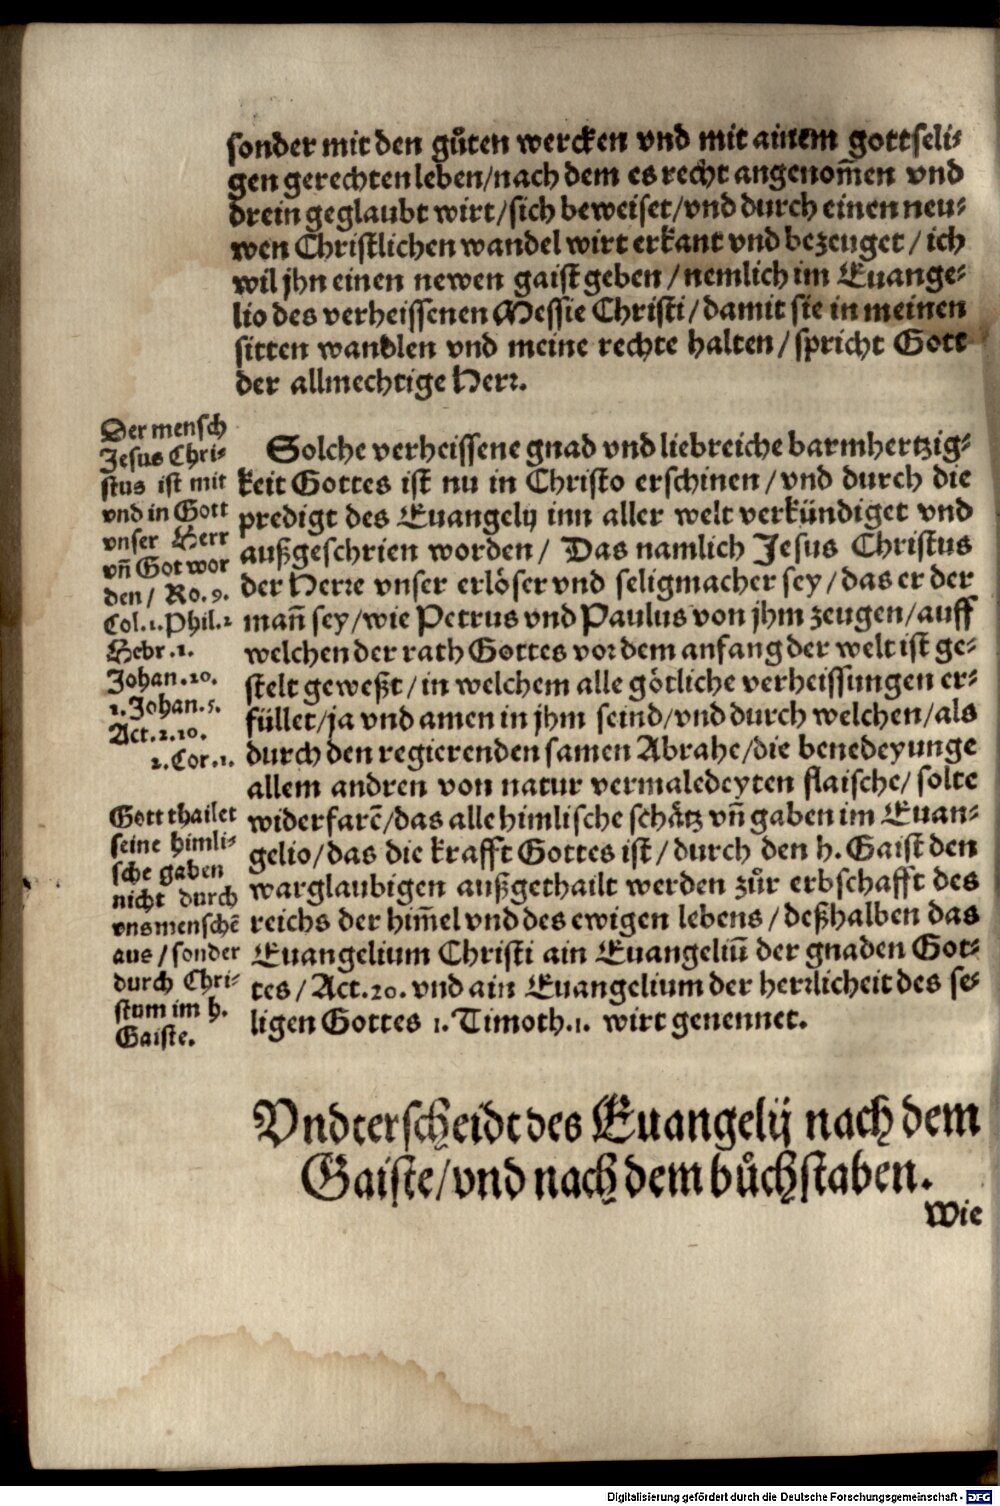 sonder mit den gůten wercken vnd mit ainem gottseli-
gen gerechten leben/nach dem es recht angenom̃en vnd
drein geglaubt wirt/sich beweiset/vnd durch einen neu-
wen Christlichen wandel wirt erkant vnd bezeuget/ich
wil jhn einen newen gaist geben/nemlich im Euange-
lio des verheissenen Messie Christi/damit sie in meinen
sitten wandlen vnd meine rechte halten/spricht Gott
der allmechtige Herr.
Der mensch
Jesus Chri-
stus ist mit
vnd in Gott
vnser Herr
vñ Got wor
den/ Ro.9.
Col.1.Phil.2
Hebr.1.
Johan.10.
1.Johan.5.
Act.2.10.
2.Cor.1.
Solche verheissene gnad vnd liebreiche barmhertzig-
keit Gottes ist nu in Christo erschinen/vnd durch die
predigt des Euangelij inn aller welt verkündiget vnd
außgeschrien worden/ Das namlich Jesus Christus
der Herre vnser erlöser vnd seligmacher sey/das er der
mañ sey/wie Petrus vnd Paulus von jhm zeugen/auff
welchen der rath Gottes vor dem anfang der welt ist ge-
stelt geweßt/in welchem alle götliche verheissungen er-
füllet/ja vnd amen in jhm seind/vnd durch welchen/als
durch den regierenden samen Abrahe/die benedeyunge
allem andren von natur vermaledeyten flaische/solte
widerfarẽ/das alle himlische schåtz vñ gaben im Euan-
gelio/das die krafft Gottes ist/durch den h. Gaist den
warglaubigen außgethailt werden zůr erbschafft des
reichs der him̃el vnd des ewigen lebens/deßhalben das
Euangelium Christi ain Euangeliũ der gnaden Got-
tes/Act.20.vnd ain Euangelium der herrlicheit des se-
ligen Gottes 1.Timoth.1. wirt genennet.
Gott thailet
seine himli-
sche gaben
nicht durch
vns menschẽ
aus/sonder
durch Chri-
stum im h.
Gaiste.
Vndterscheidt des Euangelij nach dem
Gaiste/vnd nach dem bůchstaben.
Wie
Digitalisierung gefördert durch die Deutsche Forschungsgemeinschaft - DFG